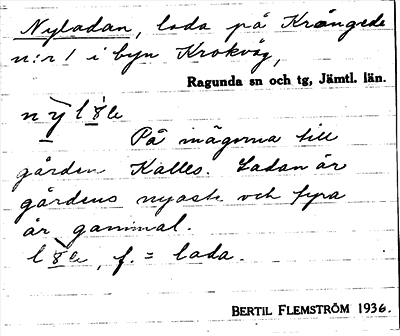 Nyladan, lada på Krångede
n:r 1 i byn Krokvåg,
Ragunda sn och tg, Jämtl. län.
På mågorna till
gården Kalles. Ladan är
gårdens nyaste och fyra
år gammal.
f. = lada.
BERTIL FLEMSTRÖM 1936.